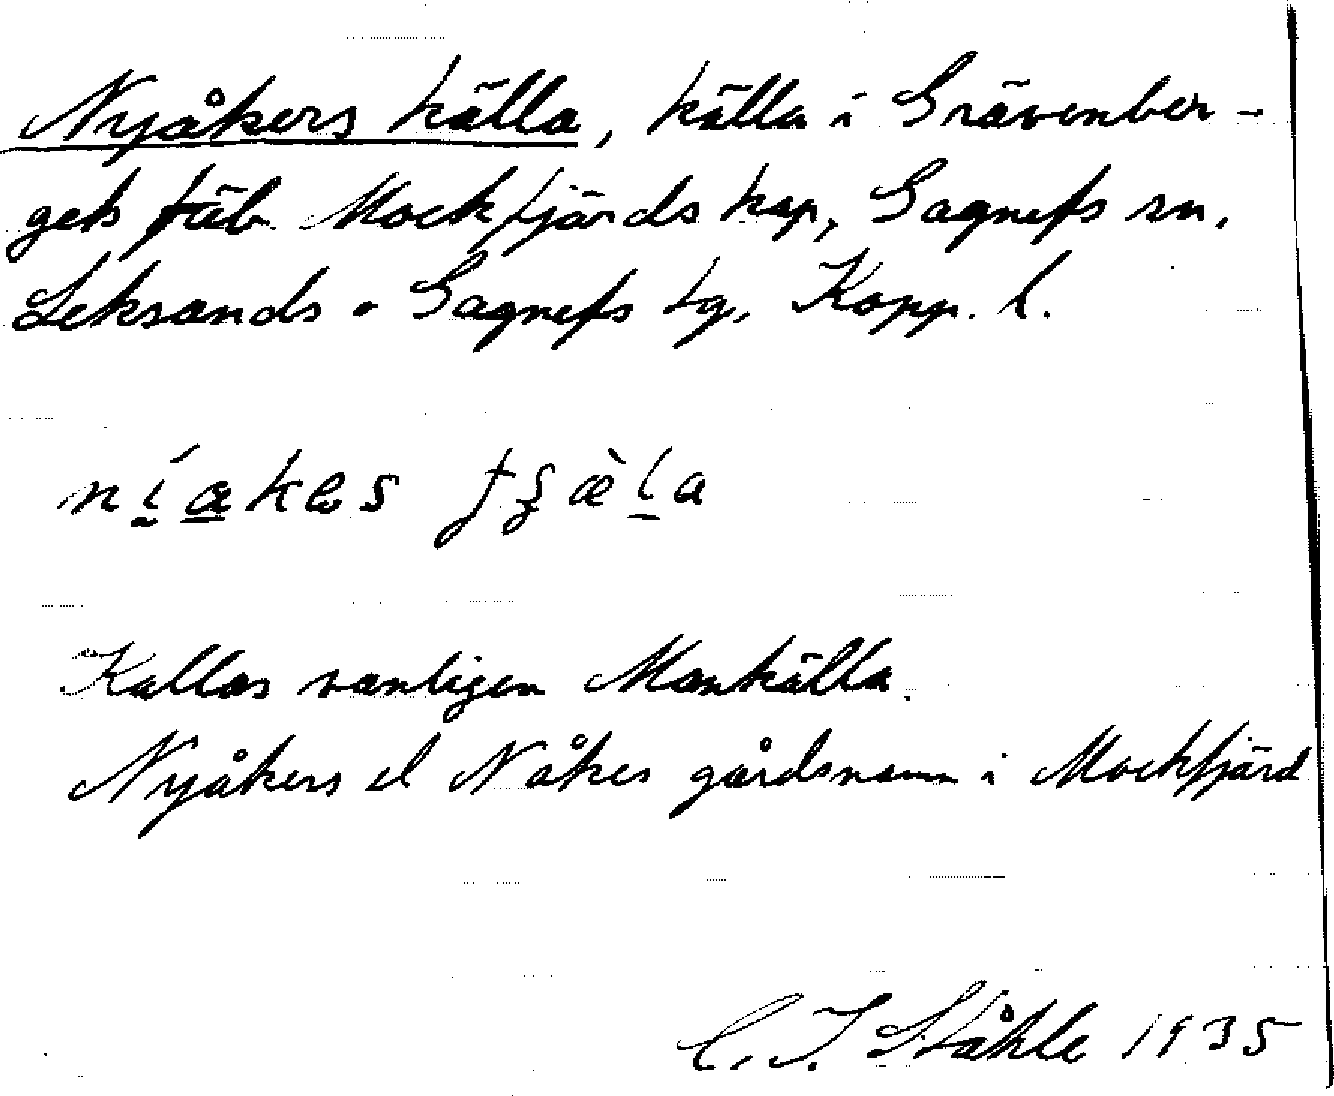 Nyåkers källa, källa i Grävenber-
gets fäb. Mockfjärds kap, Gagnefs sn.
Leksands o Gagnefs tg, Kopp. l.
Kallas vanligen Mankälla.
Nyåkers el Nåkes gårdsnamn i Mockfjärd
C. I. Ståhle 1935